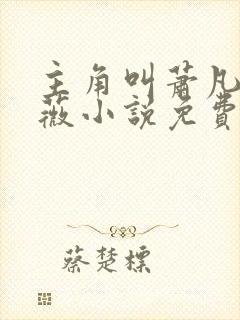 主角叫萧凡
薇小説免費
蔡楚標